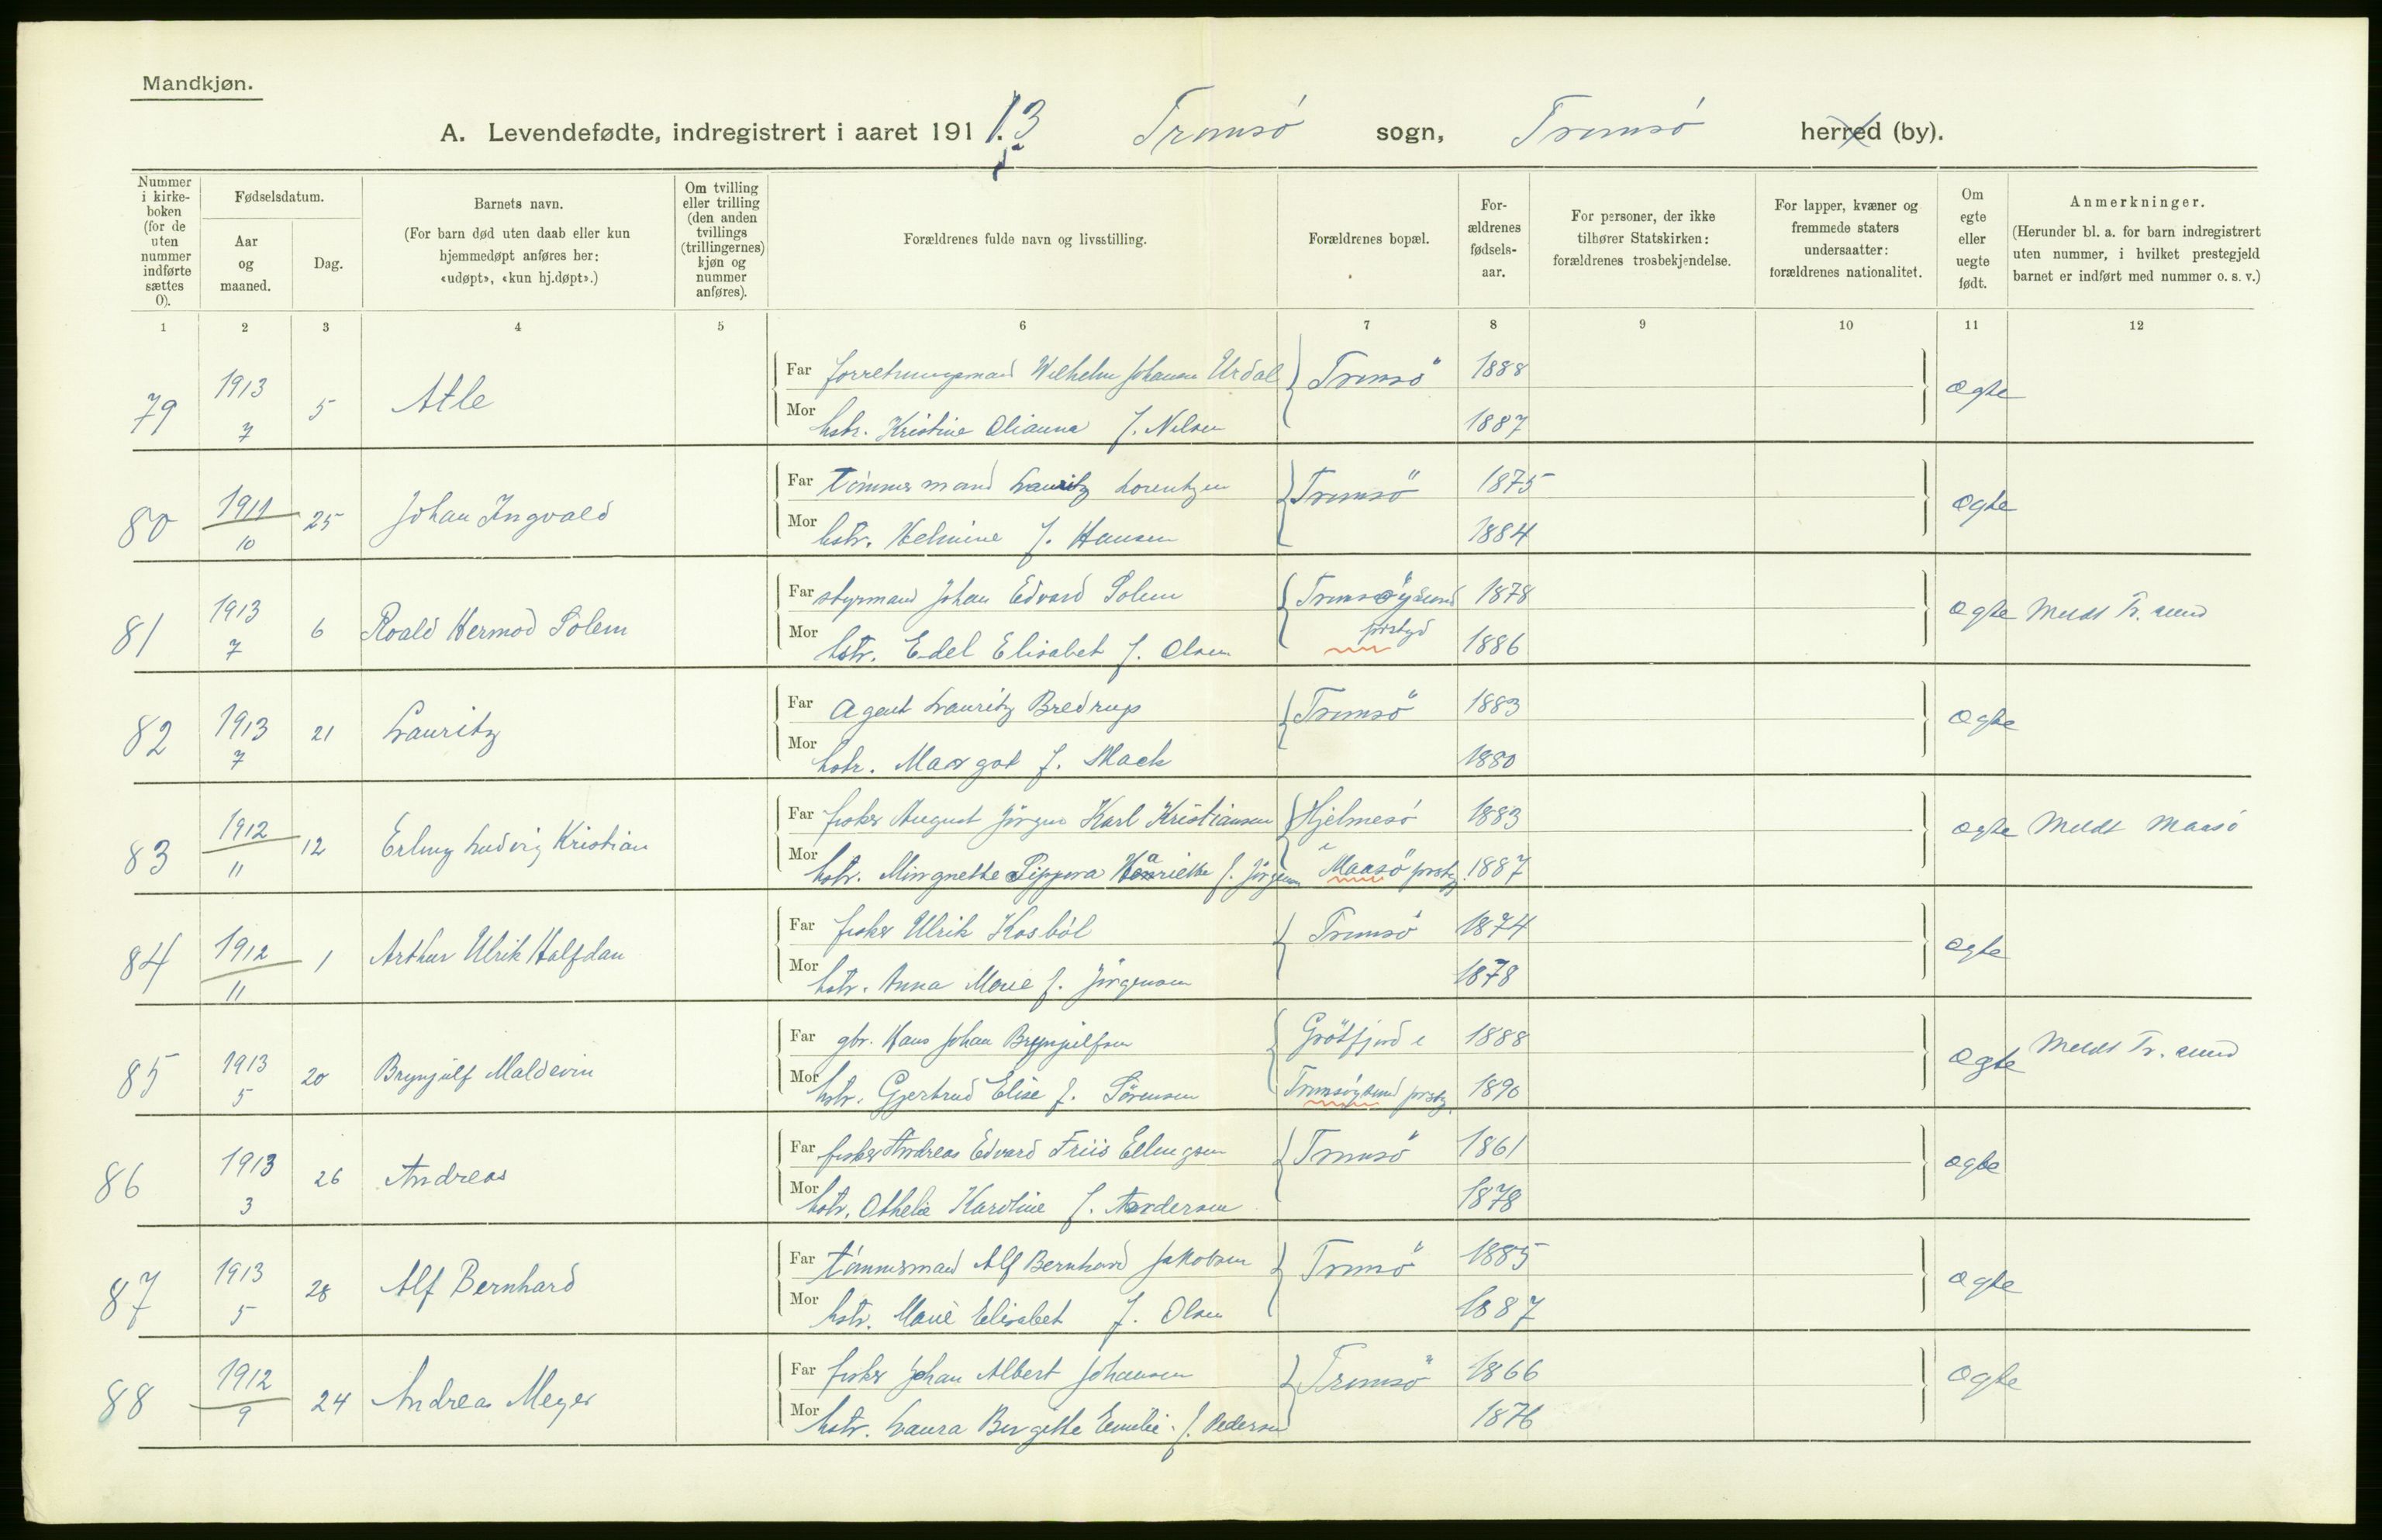 Mandkjøn.
A. Levendefødte, indregistrert i aaret 1913 Tromsö sogn, Tromsö herred (by).
Nummer i kirkeboken (for de uten nummer indførte sættes 0).
Fødselsdatum.
Aar og maaned.
Dag.
Barnets navn.
(For barn død uten daab eller kun hjemmedøpt anføres her: «udøpt», «kun hj.døpt».)
Om tvilling eller trilling (den anden tvillings (trillingernes) kjøn og nummer anføres).
Forældrenes fulde navn og livsstilling.
Forældrenes bopæl.
Forældrenes fødselsaar.
For personer, der ikke tilhører Statskirken: forældrenes trosbekjendelse.
For lapper, kvæner og fremmede staters undersaatter: forældrenes nationalitet.
Om egte eller uegte født.
Anmerkninger.
(Herunder bl. a. for barn indregistrert uten nummer, i hvilket prestegjeld barnet er indført med nummer o. s. v.)
1 2 3 4 5 6 7 8 9 10 11 12
79 1913 7 5 Atle Far forretningsmand Wilhelm Johansen Urdal Tromsö 1888 ægte
Mor hstr. Kristine Olianna f. Nilsen 1887
80 1911 10 25 Johan Ingvald Far tömmermand Lauritz Lorentzen Tromsö 1875 ægte
Mor hstr. Helmine f. Hansen 1884
81 1913 7 6 Roald Hermod Solem Far styrmand Johan Edvard Solem Tromsöysund 1878 ægte Meldt Tr. sund
Mor hstr. Edel Elisabet f. Olsen prstgd 1886
82 1913 7 21 Lauritz Far Agent Lauritz Bredrup Tromsö 1883 ægte
Mor hstr. Margot f. Mack 1880
83 1912 11 12 Erling Ludvig Kristian Far fisker August Jörgen Karl Kristiansen Hjelmesö 1883 ægte Meldt Maasö
Mor hstr. Mingnette Sippora Henriette f. Jörgensen i Maasö prstg. 1887
84 1912 11 1 Arthur Ulrik Halfdan Far fisker Ulrik Kosböl Tromsö 1874 ægte
Mor hstr. Anna Marie f. Jörgensen 1878
85 1913 5 20 Brynjulf Maldevin Far gbr. Hans Johan Brynjulfsen Grötfjord i 1888 ægte Meldt Tr. sund
Mor hstr. Gjertrud Elise f. Sörensen Tromsöysund prstg. 1890
86 1913 3 26 Andreas Far fisker Andreas Edvard Friis Ellingsen Tromsö 1861 ægte
Mor hstr. Othelie Karoline f. Andersen 1878
87 1913 5 28 Alf Bernhard Far tömmermand Alf Bernhard Jakobsen Tromsö 1885 ægte
Mor hstr. Marie Elisabet f. Olsen 1887
88 1912 9 24 Andreas Meyer Far fisker Johan Albert Johansen Tromsö 1866 ægte
Mor hstr. Laura Birgitte Emilie f. Pedersen 1876